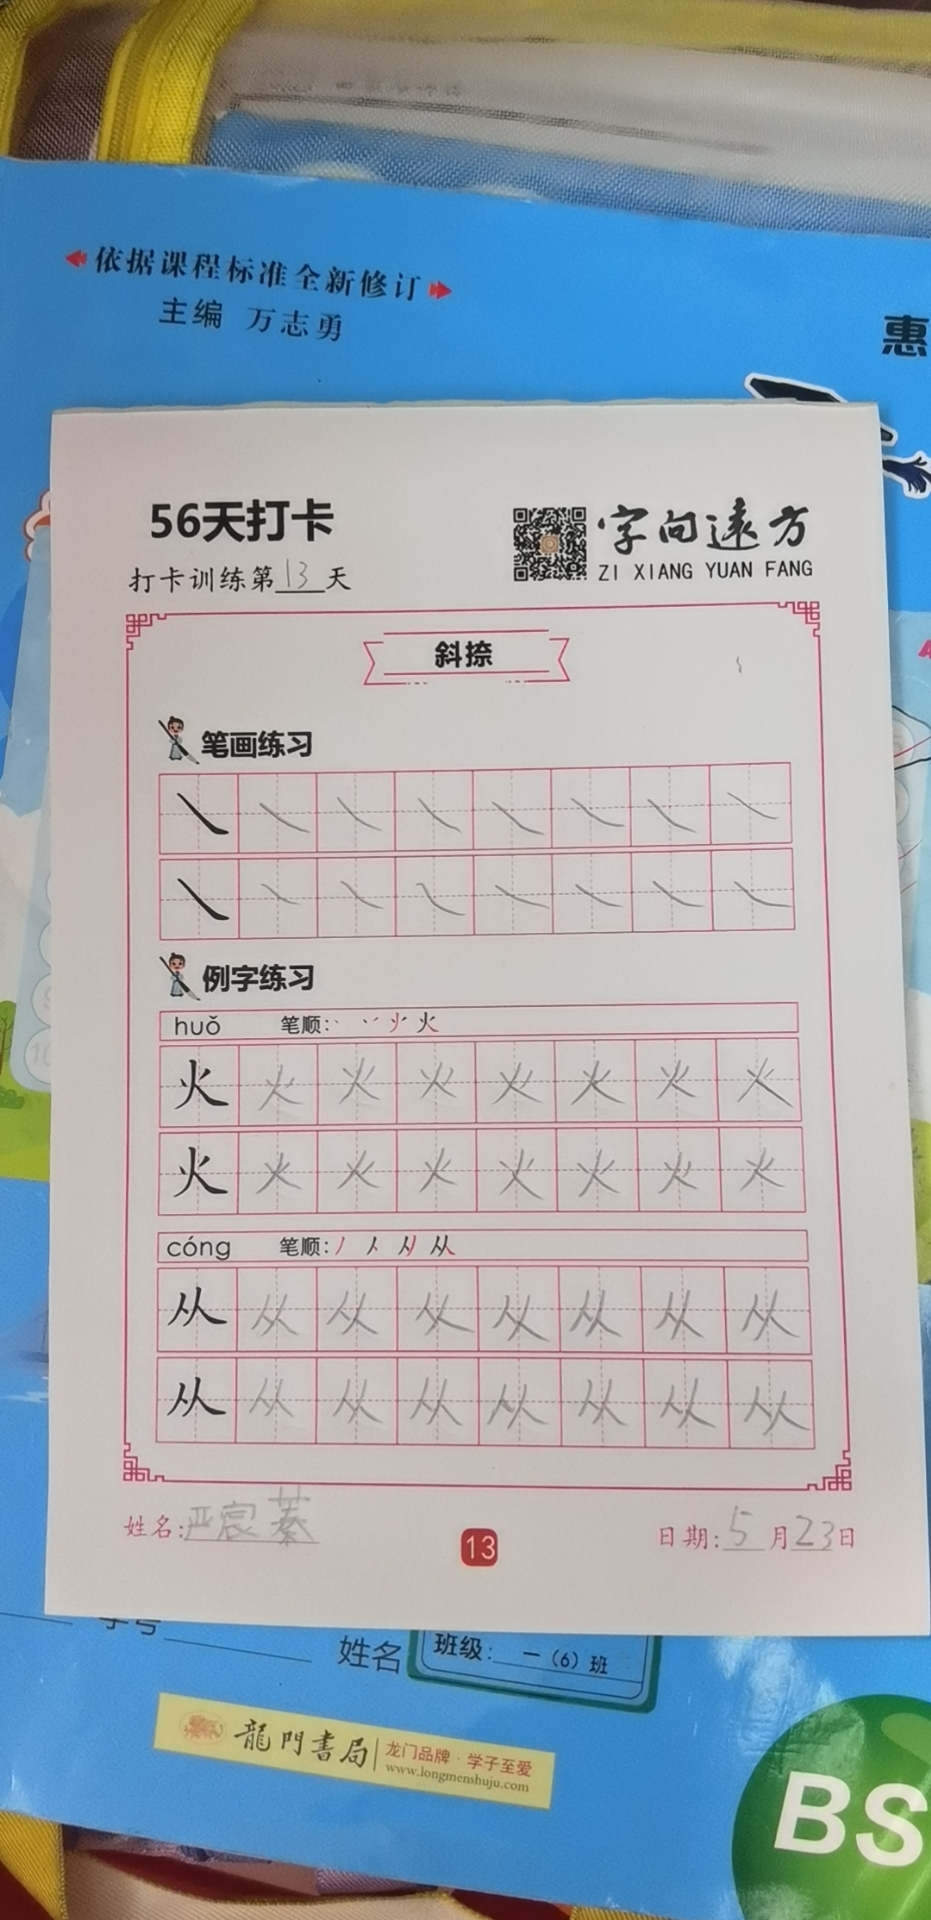 依据课程标准全新修订
主编 万志勇
惠
56天打卡
打卡训练第13天
字向遠方
ZI XIANG YUAN FANG
斜捺
笔画练习
例字练习
huǒ 笔顺:
火
火 火 火 火 火 火 火 火
火 火 火 火 火 火 火 火
cóng 笔顺:
从
从 从 从 从 从 从 从 从
从 从 从 从 从 从 从 从
姓名:严宸蓁
13
日期:5月23日
学号
姓名
班级: 一(6)班
龍門書局
龙门品牌·学子至爱
www.longmenshuju.com
BS